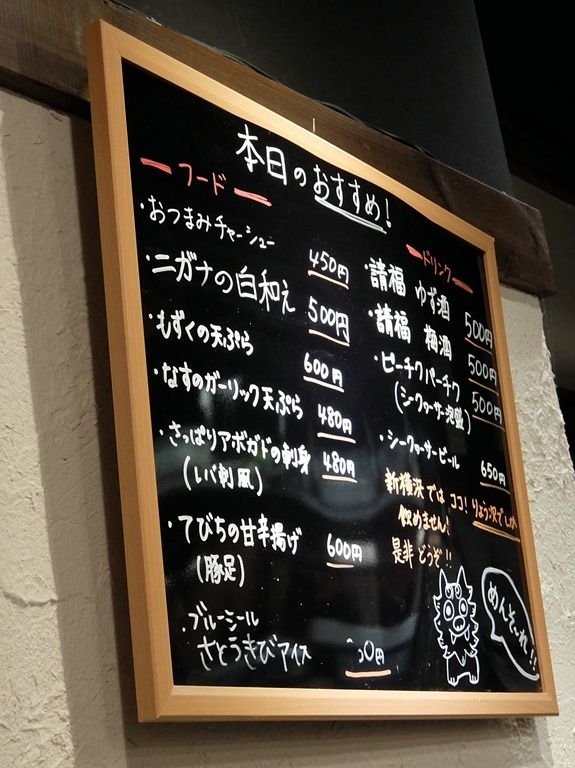 本日のおすすめ!
フード
・おつまみチャーシュー
450円
・ニガナの白和え
500円
・もずくの天ぷら
600円
・なすのガーリック天ぷら
480円
・さっぱりアボガドの刺身
(レバ刺風)
480円
・てびちの甘辛揚げ
(豚足)
600円
・ブルーシール
さとうきびアイス
ドリンク
・請福 ゆず酒
500円
・請福 梅酒
500円
・ピーチクパーチク
(シークヮーサー泡盛)
500円
・シークヮーサービール
650円
新横浜では ココ!りょう次でしか
飲めません!
是非 どうぞ!!
めんそ〜れ!!